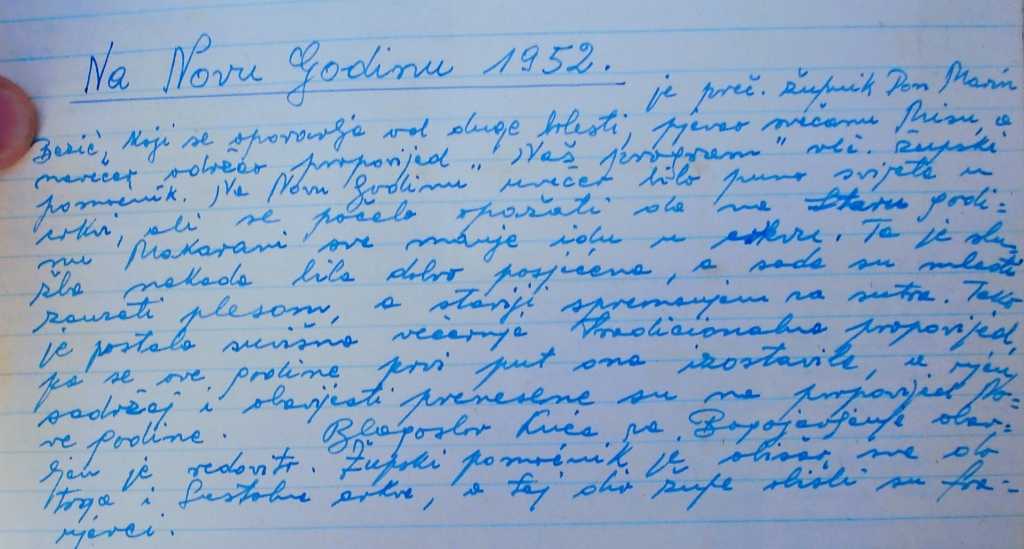 Na Novu Godinu 1952.
je preč. župnik Don Marin
Bezić, koji se oporavlja od duge bolesti, pjevao svečanu Misu, a
navečer održao propovijed "Naš program" vlč. župski
pomoćnik. Na Novu Godinu uvečer bilo puno svijeta u
crkvi, ali se počelo opažati da na Staru godi=
nu Makarani sve manje idu u crkvu. Ta je slu=
žba nekada bila dobro posjećena, a sada su mladi
zauzeti plesom, a stariji spremanjem za sutra. Tako
je postala suvišna večernja tradicionalna propovijed,
pa se ove godine prvi put ona izostavila, a njen
sadržaj i obavijesti prenesene su na propovijed No-
ve godine. Blagoslov kuća za Bogojavljenje obav-
ljen je redovito. Župski pomoćnik je obišao sve do
trga i Stolne crkve, a taj dio župe obišli su fra-
njevci.